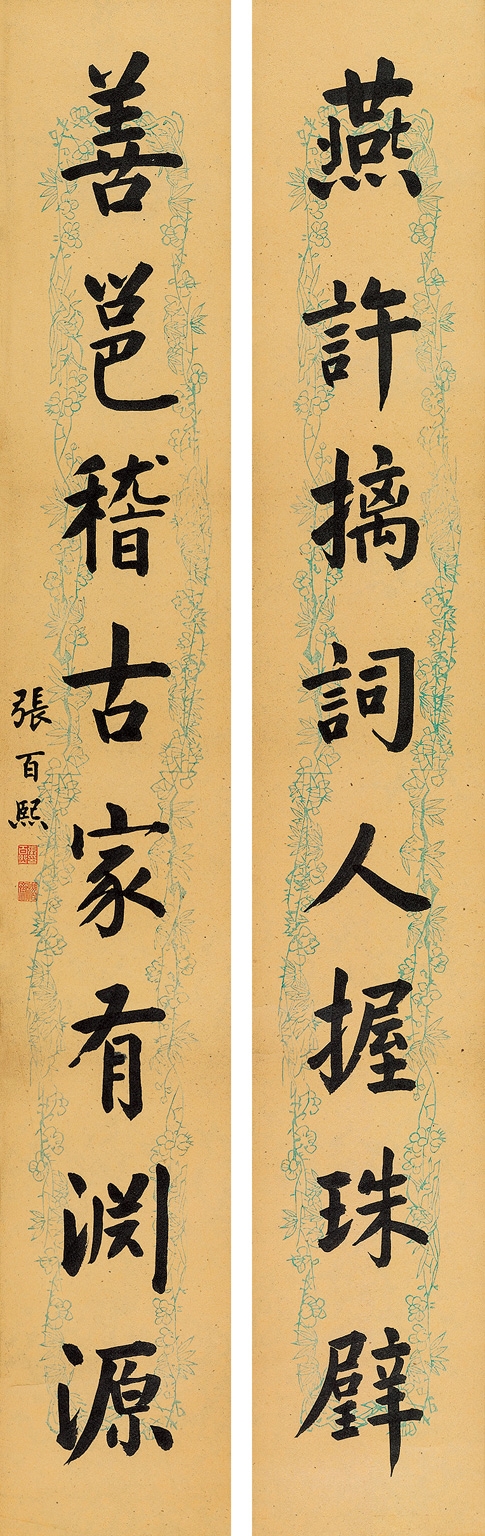 燕許摛詞人握珠璧
善邕稽古家有渊源
張百熙